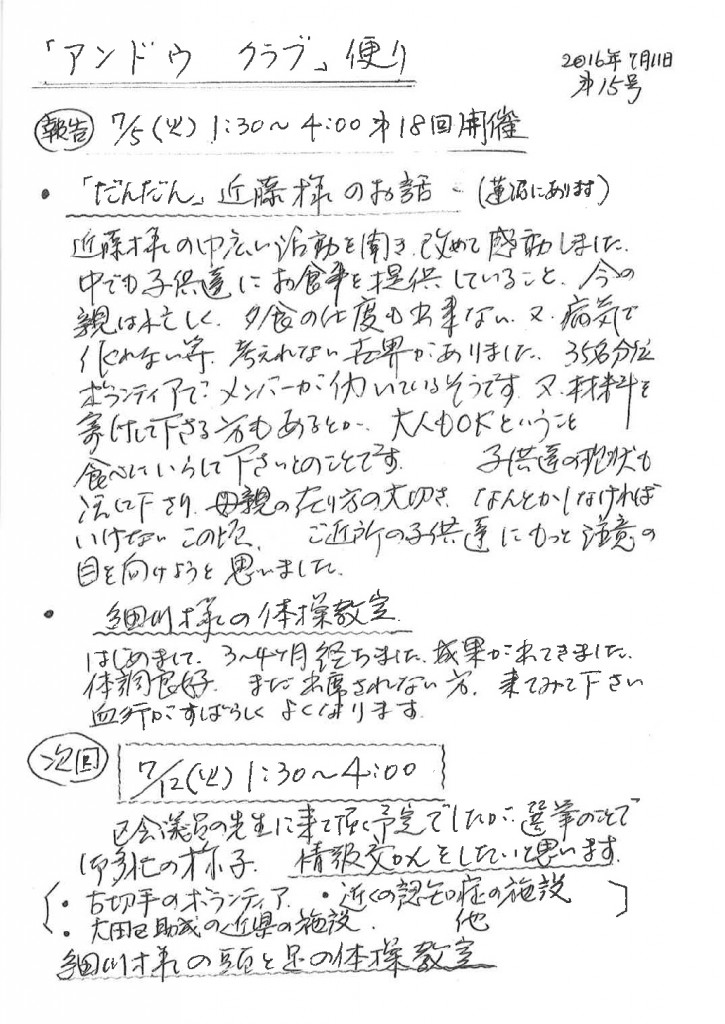 「アンドウ クラブ」便り
2016年7月11日
第15号
報告 7/5(火) 1:30〜4:00 第18回開催
・「だんだん」近藤様のお話 - (蓮沼にあります)
近藤様の巾広い活動を聞き、改めて感動しました。
中でも子供達にお食事を提供していること、今の
親は忙しく、夕食の仕度も出来ない、又、病気で
作れない等、考えれない世界がありました。35名分位
ボランティアで、メンバーが働いているそうです。又、材料を
寄付して下さる方もあるとか、大人もOKということ
食べにいらして下さいとのことです。 子供達の現状も
話して下さり、母親の在り方の大切さ、なんとかしなければ
いけないこの頃、 ご近所の子供達にもっと注意の
目を向けようと思いました。
・ 細川様の体操教室
はじめまして、3〜4ヶ月経ちました。成果が出てきました。
体調良好、まだ出席されない方、来てみて下さい
血行がすばらしくよくなります。
次回 7/12(火) 1:30〜4:00
区会議員の先生に来て頂く予定でしたが、選挙のことで
御多忙の様子、情報交かんをしたいと思います。
・古切手のボランティア、 ・近くの認知症の施設
・大田区助成の近県の施設、 他
細川様の頭と足の体操教室